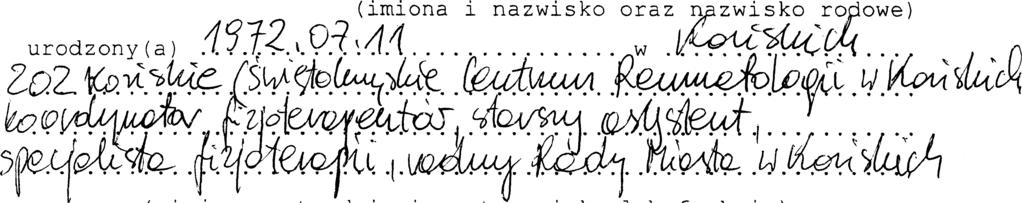 (imiona i nazwisko oraz nazwisko rodowe)
urodzony(a) 1972.07.11 w Końskich
ZOZ Końskie (Świętokrzyskie Centrum Reumatologii w Końskich
koordynator fizjoterapeutów, starszy asystent,
specjalista fizjoterapii, radny Rady Miasta w Końskich